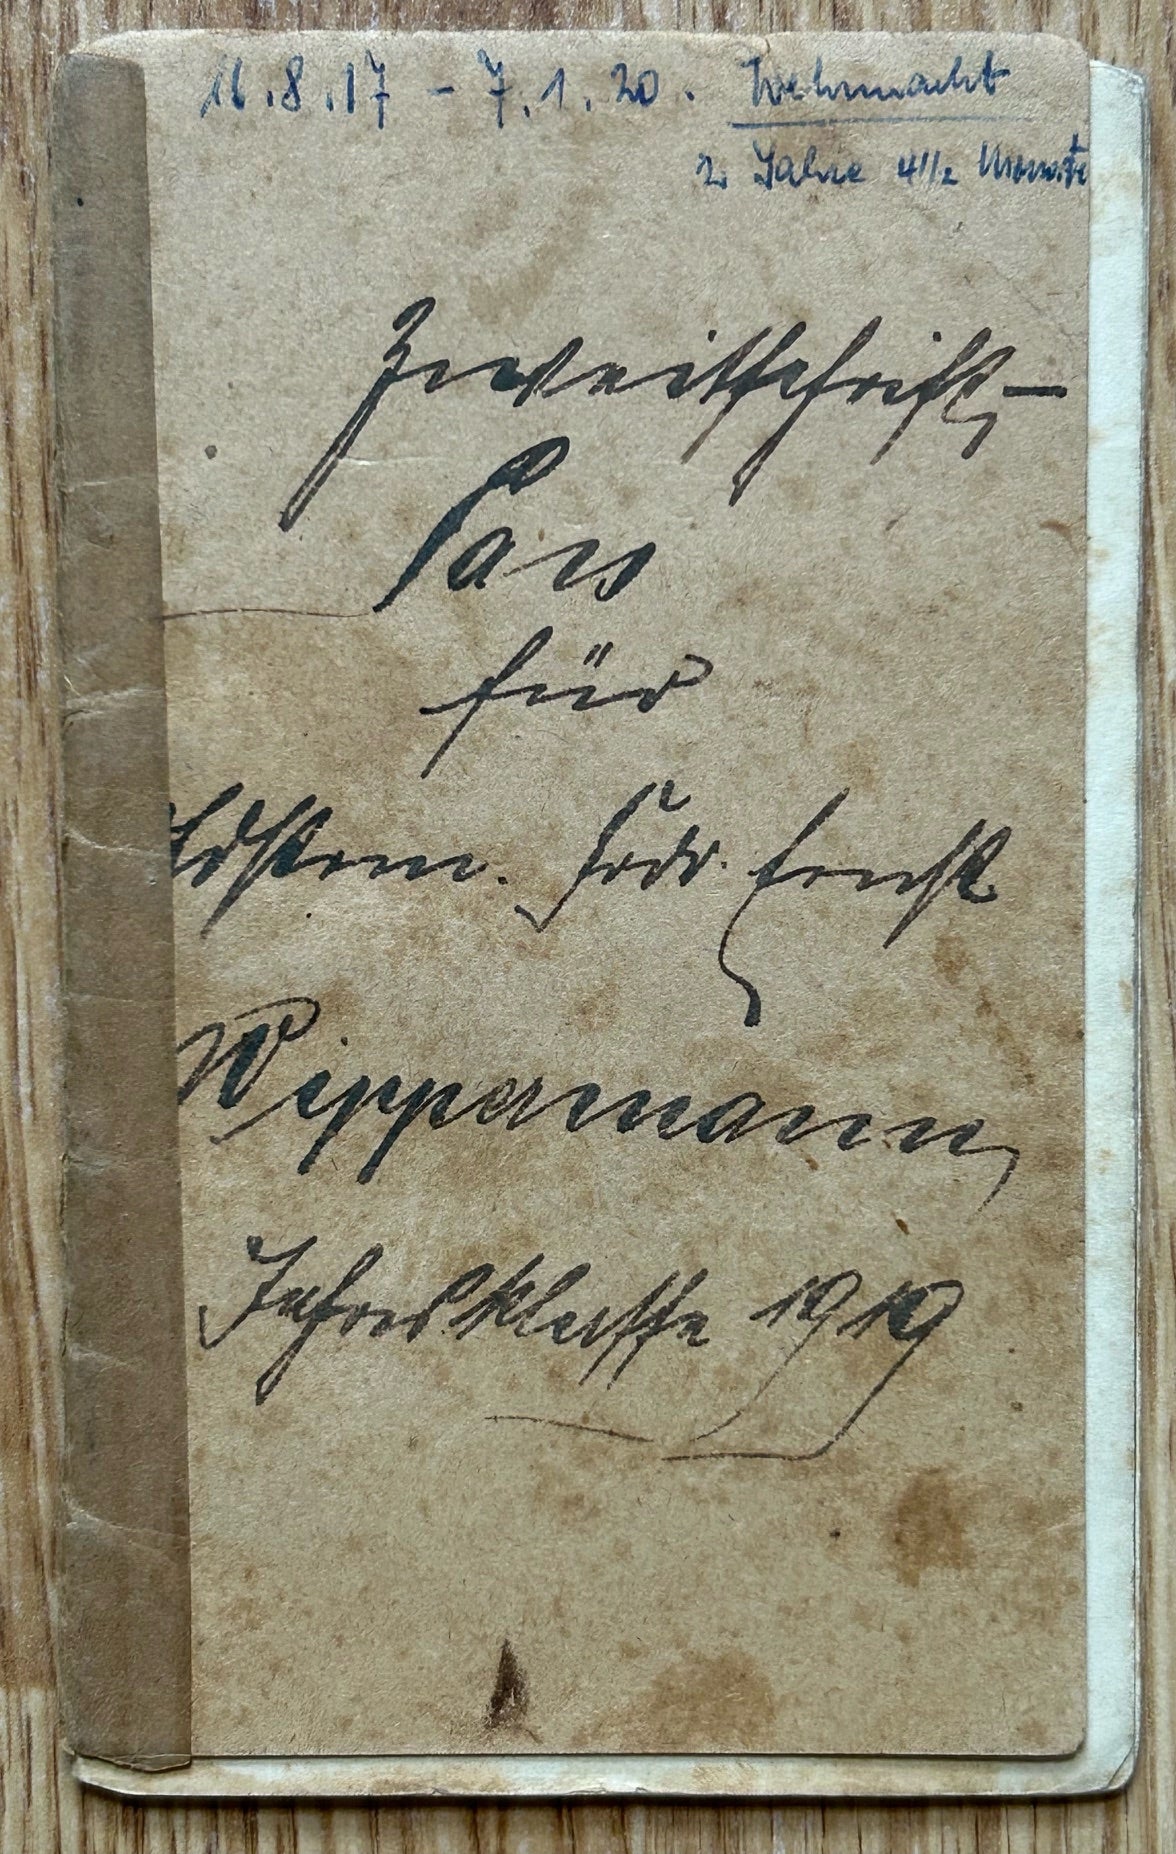 16.8.17 - 7.1.20. Wehrmacht
2 Jahre 4 1/2 Monate
Zweitschrift-
Pass
für
Ldstrm. Frdr. Ernst
Wippermann,
Jahresklasse 1919